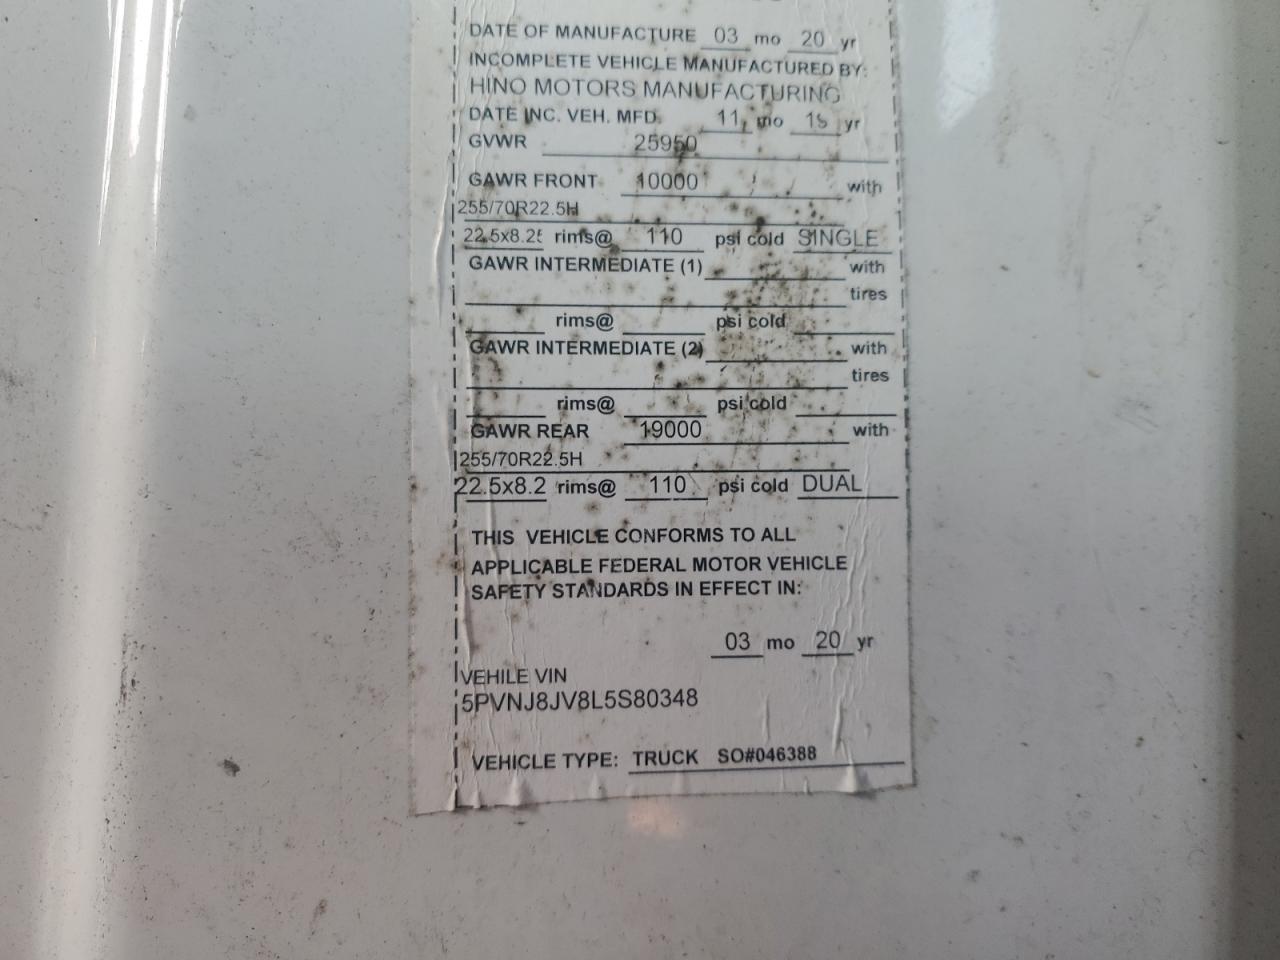 DATE OF MANUFACTURE 03 mo 20 yr
INCOMPLETE VEHICLE MANUFACTURED BY:
HINO MOTORS MANUFACTURING
DATE INC. VEH. MFD. 11 mo yr
GVWR 25950
GAWR FRONT 10000 with
255/70R22.5H
22.5x8.25 rims@ 110 psi cold SINGLE
GAWR INTERMEDIATE (1) with
tires
rims@ psi cold
GAWR INTERMEDIATE (2) with
tires
rims@ psi cold
GAWR REAR 19000 with
255/70R22.5H
22.5x8.2 rims@ 110 psi cold DUAL
THIS VEHICLE CONFORMS TO ALL
APPLICABLE FEDERAL MOTOR VEHICLE
SAFETY STANDARDS IN EFFECT IN:
03 mo 20 yr
VEHILE VIN
5PVNJ8JV8L5S80348
VEHICLE TYPE: TRUCK SO#046388